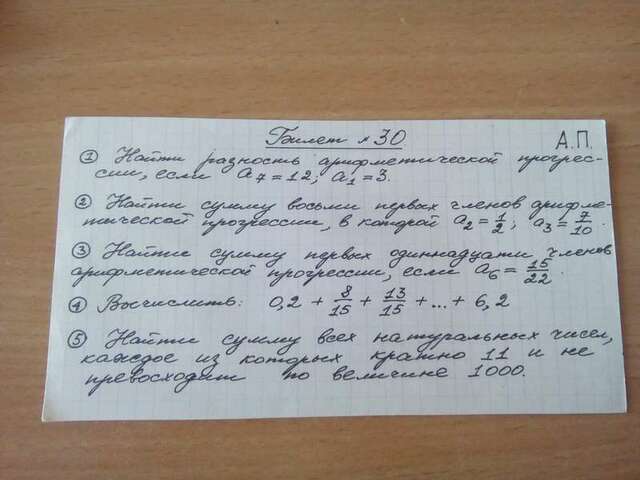 Билет №30
А.П.
① Найти разность арифметической прогрес-
сии, если a₇=12; a₁=3.
② Найти сумму восьми первых членов арифме-
тической прогрессии, в которой a₂=1/2; a₃=7/10.
③ Найти сумму первых одиннадцати членов
арифметической прогрессии, если a₆=15/22.
④ Вычислить: 0,2+8/15+13/15+...+6,2
⑤ Найти сумму всех натуральных чисел,
каждое из которых кратно 11 и не
превосходит по величине 1000.